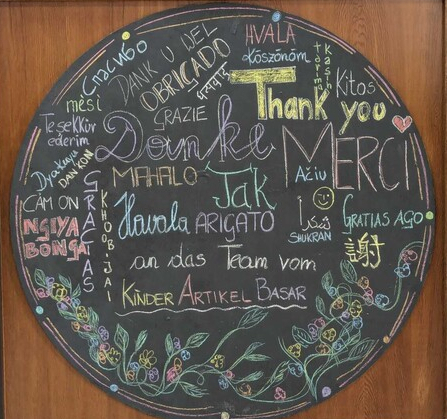 Спасибо
HVALA
DANK U WEL
Köszönöm
OBRIGADO
Kitos
mési
GRAZIE
Thank you
Teşekkür
ederim
Danke
MERCI
Dyakuyu
DANKON
MAHALO
Tak
AČIU
CAM ON
GRACIAS
KHOB·JAI
Havala
ARIGATO
شكراً
SHUKRAN
GRATIAS AGO
NGIYA
BONGA
謝
an das Team vom
KINDER ARTIKEL BASAR